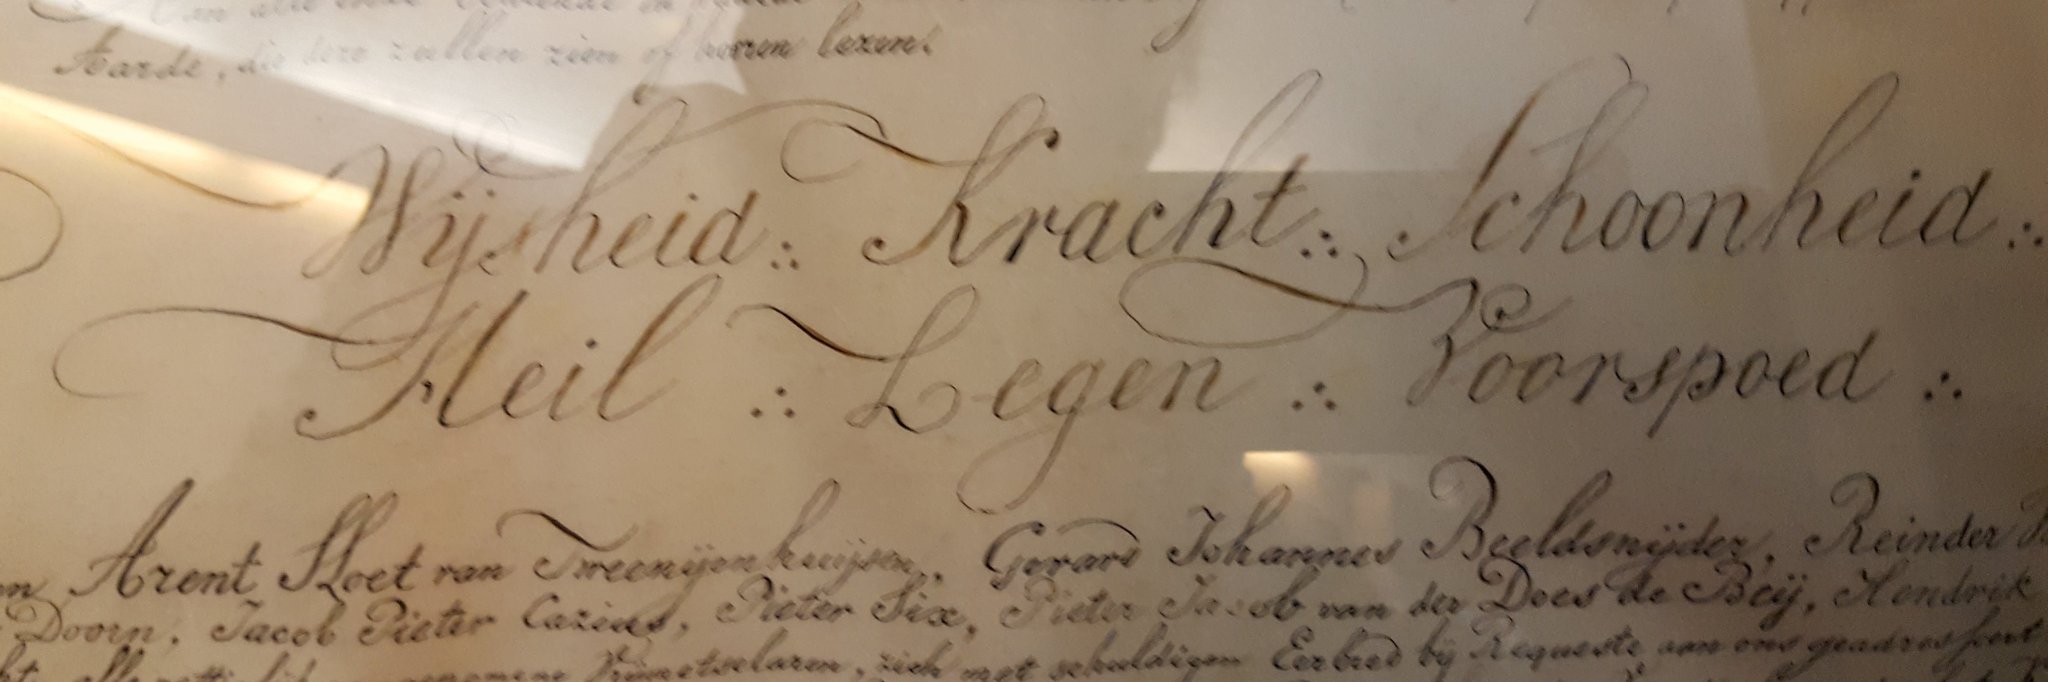 Aarde, die deze zullen zien of hooren lezen.
Wijsheid ∴ Kracht ∴ Schoonheid ∴
Heil ∴ Zegen ∴ Voorspoed ∴
Arent Sloet van Tweenijenhuijsen, Gerard Johannes Beeldsnijder, Reinder
Doorn, Jacob Pieter Cazius, Pieter Six, Pieter Jacob van der Does de Beij, Hendrik
Vrimetselaren, zich met schuldigen Eerbied bij Requeste aan ons geadresseert